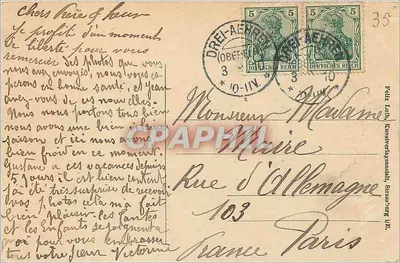 chers Frère & Sœur
Je profit d'un moment
de liberté pour vous
remercier des photos que vous
nous avez envoyés, nous vous es-
pérons en bonne santé, et Jean
avez-vous de ces nouvelles.
Nous nous portons tous bien
nous avons une bien
saison et ici nous avons
bien froid en ce moment
Gustave a ces vacances depuis
5 jours il est bien content
j'ai été très surprise de recevoir
vos photos cela m'a fait
bien plaisir. les tantes
et les enfants se joignent
à moi pour vous embrasser
tous votre sœur Victorine
35
5 5
DEUTSCHES REICH
DREI-AEHREN
3 10
* 10-11N *
DREI-AEHREN
10
Monsieur Madame
Maire
Rue d'Allemagne
103
Paris
France
Felix Luib, Kunstverlagsanstalt, Strassburg i/E.
CPAPHIL